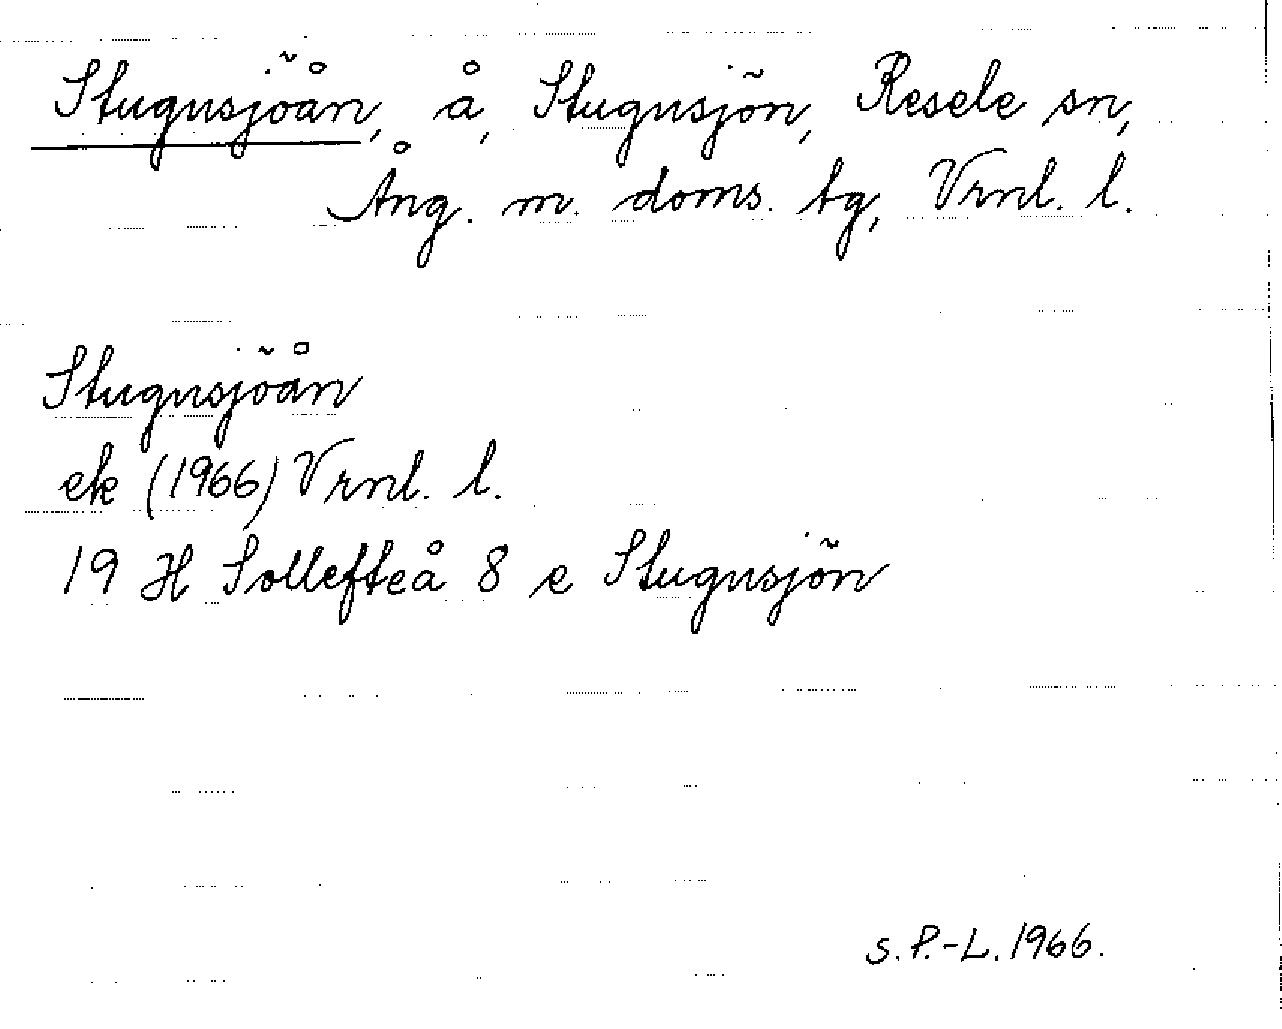 Stugusjöån, å, Stugusjön, Resele sn,
Ång. m. doms. tg, Vrnl. l.
Stugusjöån
ek (1966) Vrnl. l.
19 H Sollefteå 8 e Stugusjön
S. P.-L. 1966.